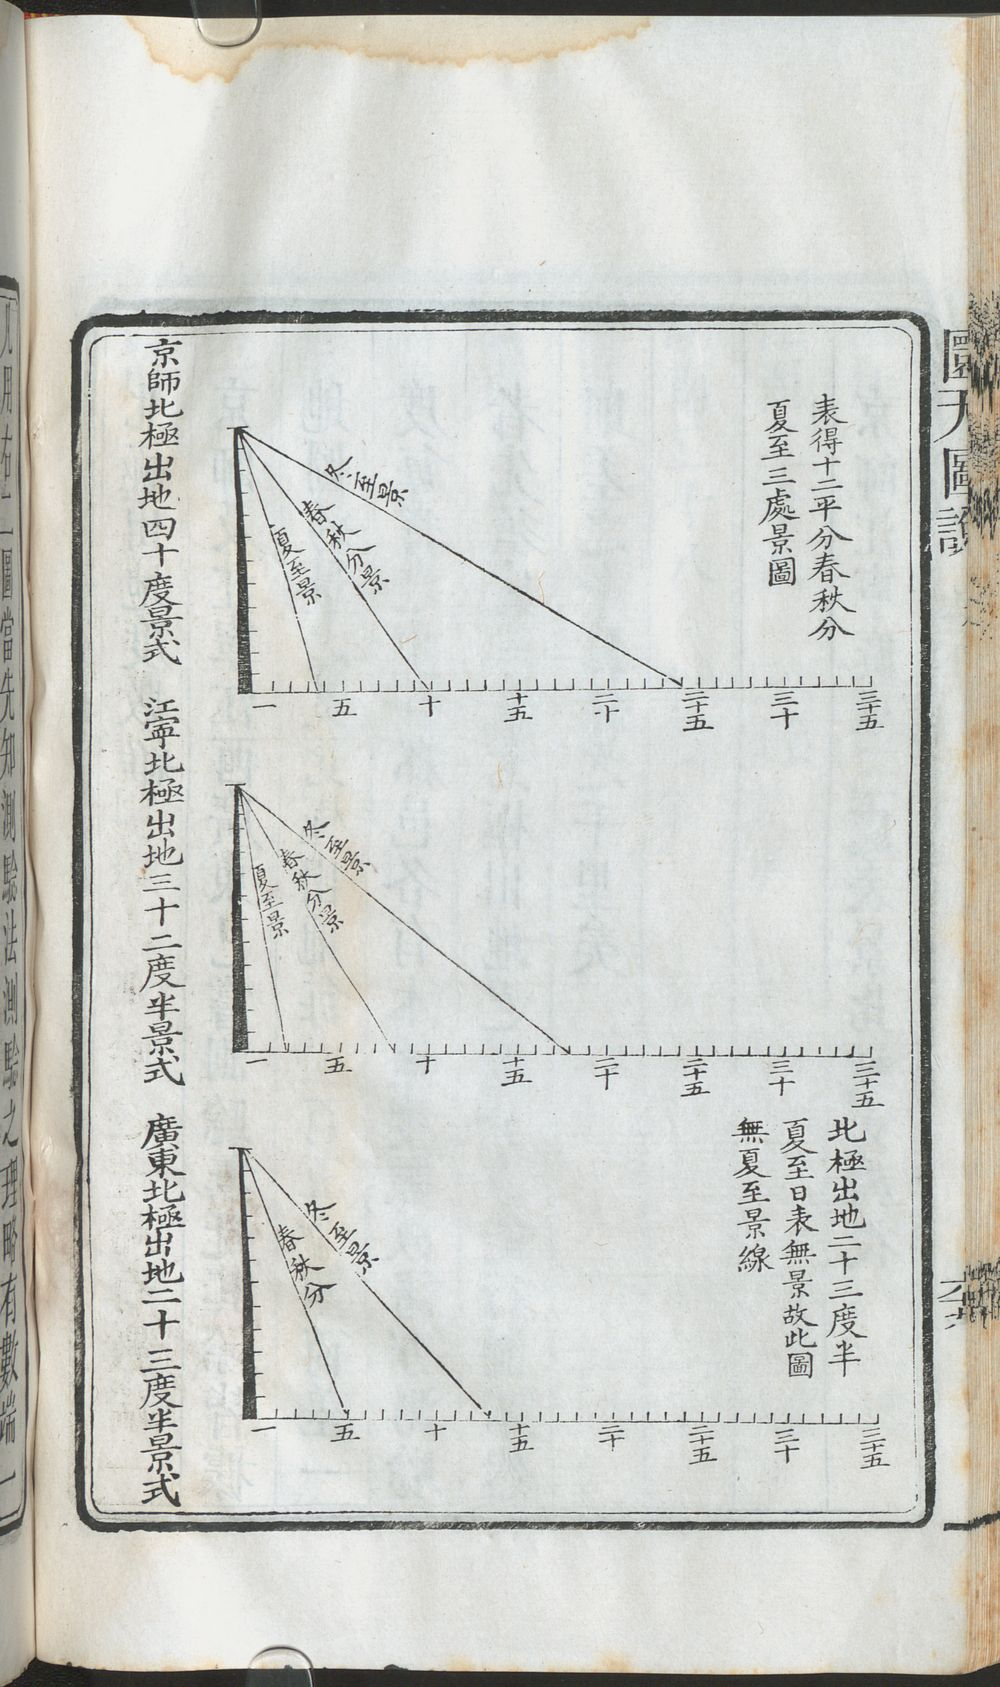 圜天圖說
表得十二平分春秋分
夏至三處景圖
冬至景
春秋分景
夏至景
一 五 十 十五 二十 二十五 三十 三十五
京師北極出地四十度景式
冬至景
春秋分景
夏至景
一 五 十 十五 二十 二十五 三十 三十五
江寧北極出地三十二度半景式
北極出地二十三度半
夏至日表無景故此圖
無夏至景線
冬至景
春秋分
一 五 十 十五 二十 二十五 三十 三十五
廣東北極出地二十三度半景式
圖當先知測驗法測驗之理略有數端一